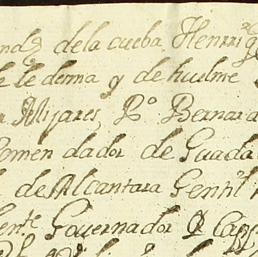 de la cueba Henrri
de lederma y de huelme
Mijares, R.º Bernar
omen dador de Guada
de Alcantara Gentil
Governador Cap